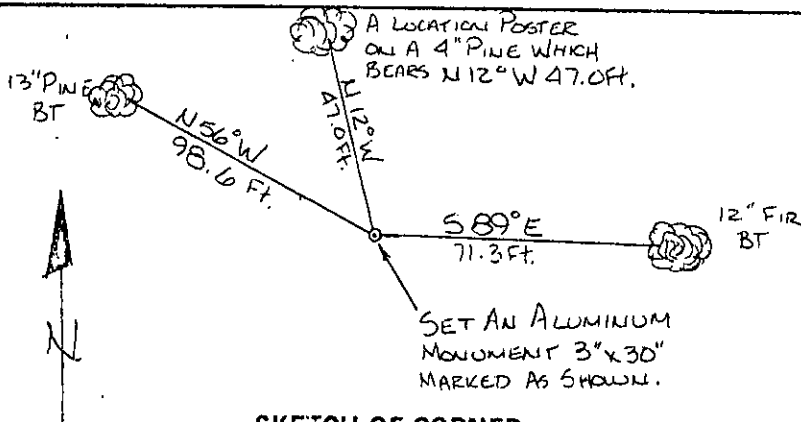 A LOCATION POSTER
ON A 4" PINE WHICH
BEARS N12°W 47.0FT.
13" PINE
BT
N56°W
98.6 Ft.
N12°W
47.0Ft.
S89°E
71.3Ft.
12" FIR
BT
N
SET AN ALUMINUM
MONUMENT 3"x30"
MARKED AS SHOWN.
SKETCH OF CORNER